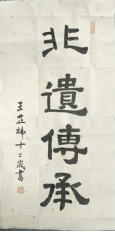 非遺傳承
王芷祎十二歲書